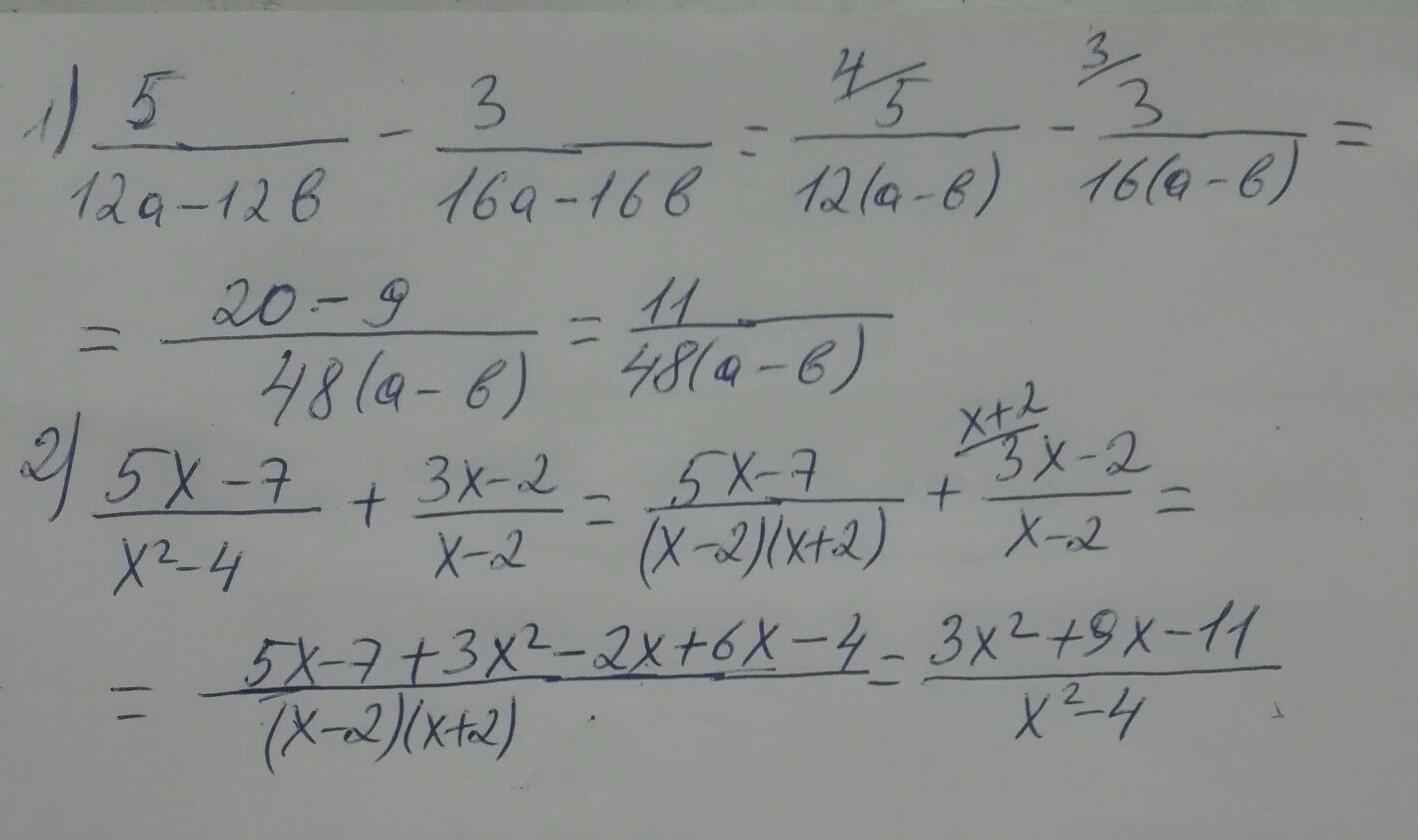 1) 5/(12a-12в) - 3/(16a-16в) = ⁴⁄5/(12(a-в)) - ³⁄3/(16(a-в)) =
= (20-9)/(48(a-в)) = 11/(48(a-в))
2) (5x-7)/(x²-4) + (3x-2)/(x-2) = (5x-7)/((x-2)(x+2)) + ˣ⁺²⁄(3x-2)/(x-2) =
= (5x-7+3x²-2x+6x-4)/((x-2)(x+2)) = (3x²+9x-11)/(x²-4)